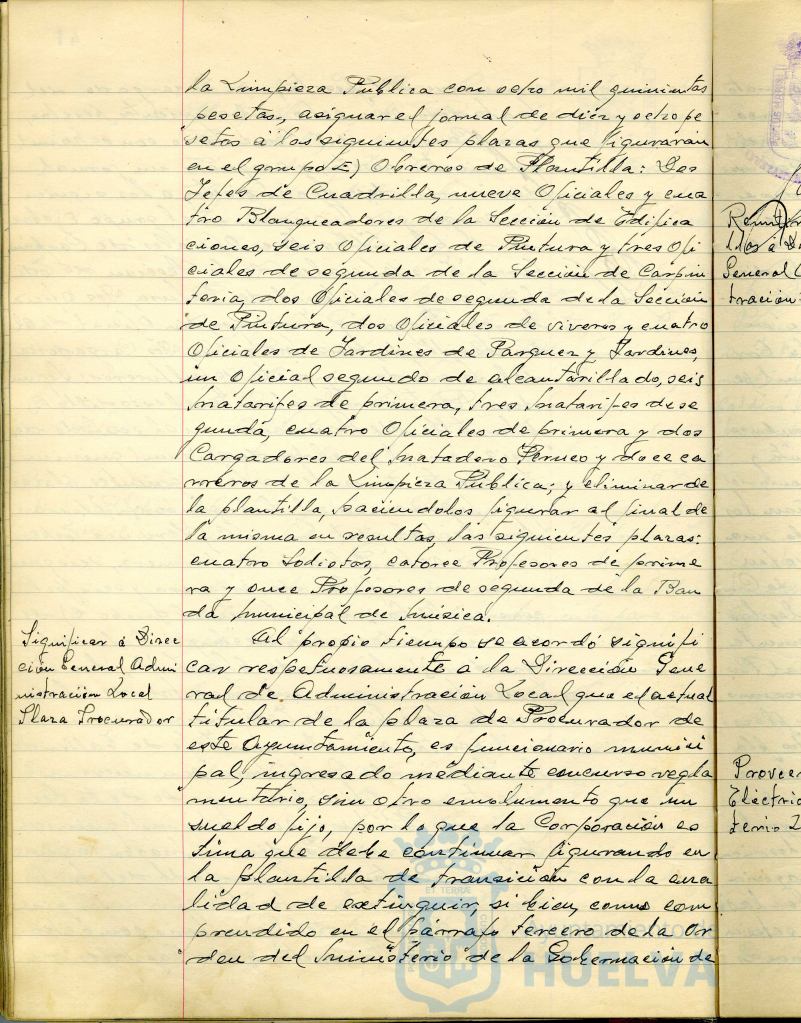 la Limpieza Publica con ocho mil quinientas
pesetas, asignar el jornal de diez y ocho pe
setas á los siguientes plazas que figurarán
en el grupo E) Obreros de Plantilla: Dos
Jefes de Cuadrilla, nueve Oficiales y cua
tro Blanqueadores de la Sección de Edifica
ciones, seis Oficiales de Pintura y tres Ofi
ciales de segunda de la Sección de Carpin
teria, dos Oficiales de segunda de la Sección
de Pintura, dos Oficiales de viveros y cuatro
Oficiales de Jardines de Parques y Jardines,
un Oficial segundo de alcantarillado, seis
Matarifes de primera, tres Matarifes de se
gunda, cuatro Oficiales de primera y dos
Cargadores del Matadero Perneo y doce ca
rreros de la Limpieza Publica; y eliminar de
la plantilla, haciéndolos figurar al final de
la misma en resultas, las siguientes plazas:
cuatro Sodiotas, catorce Profesores de prime
ra y once Profesores de segunda de la Ban
da Municipal de Música.
Al propio tiempo se acordó signifi
car respetuosamente á la Dirección Gene
ral de Administración Local que el actual
titular de la plaza de Procurador de
este Ayuntamiento, es funcionario munici
pal, ingresado mediante concurso regla
mentario, sin otro emolumento que un
sueldo fijo, por lo que la Corporación es
tima que debe continuar figurando en
la plantilla de transición con la cua
lidad de extinguir, si bien, como com
prendido en el párrafo tercero de la Or
den del Ministerio de la Gobernación de
Significar á Direc
ción General Admi
nistración Local
Plaza Procurador
General
tración
Provee
Electric
terio
EL TERRA
HUELVA